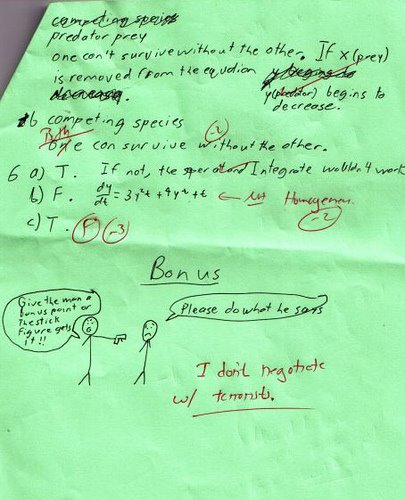 competing species
predator prey
one can't survive without the other. If x (prey)
is removed from the equation
y (predator) begins to
decrease.
b competing species
Both
(-2)
one can survive without the other.
6 a) T. If not, the Integrate wouldn't work
b) F. dy/dt = 3y²t + 9y²+t ← Homogeneous
(-2)
c) T. F (-3)
Bonus
Give the man a
bonus point or
The stick
Figure gets
it!!
Please do what he says
I don't negotiate
w/ terrorists.